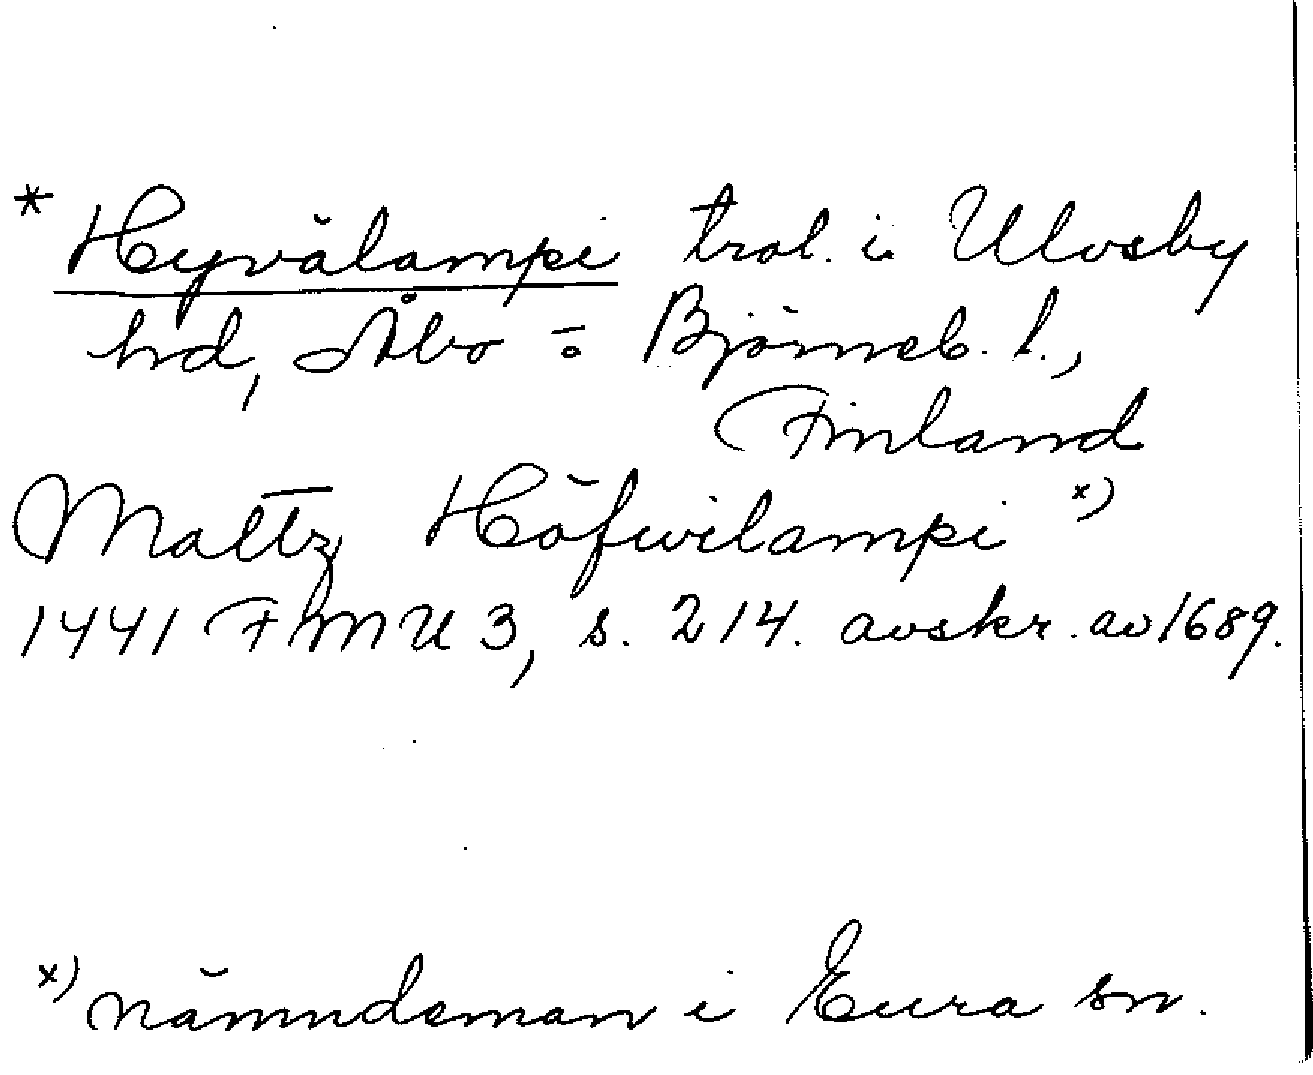 * Hyvälampi trol. i Ulvsby
hd, Åbo - o Björneb. l.,
Finland
Mattz Höfwilampi x)
1441 FMU 3, s. 214. avskr. av 1689.
x) nämndeman i Eura sn.